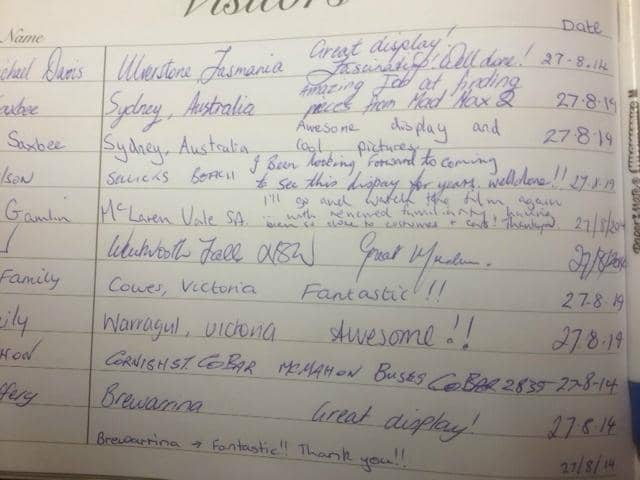 Visitors
Name Date
Michael Davis Ulverstone, Tasmania Great display! Fascinating! Well done! 27-8.14
Saxbee Sydney, Australia Amazing Job at finding
pieces from Mad Max 2 27.8.14
Saxbee Sydney, Australia Awesome display and
cool pictures. 27.8.14
lson Sellicks Beach I Been looking forward to coming
to see this display for years. well done!!
Gamlin McLaren Vale SA. I'll go and watch the film again
with renewed familiarity having
been so close to costumes + cars! Thankyou
Falls NSW Great Museum. 27/8/2014
Family Cowes, Victoria Fantastic!!! 27.8.14
ily Warragul, Victoria Awesome!! 27.8.14
HON CORNISH ST. COBAR MCMAHON BUSES COBAR 2835 27-8-14
ffery Brewarrina Great display! 27.8.14
Brewarrina → Fantastic!! Thank you!! 27/8/14